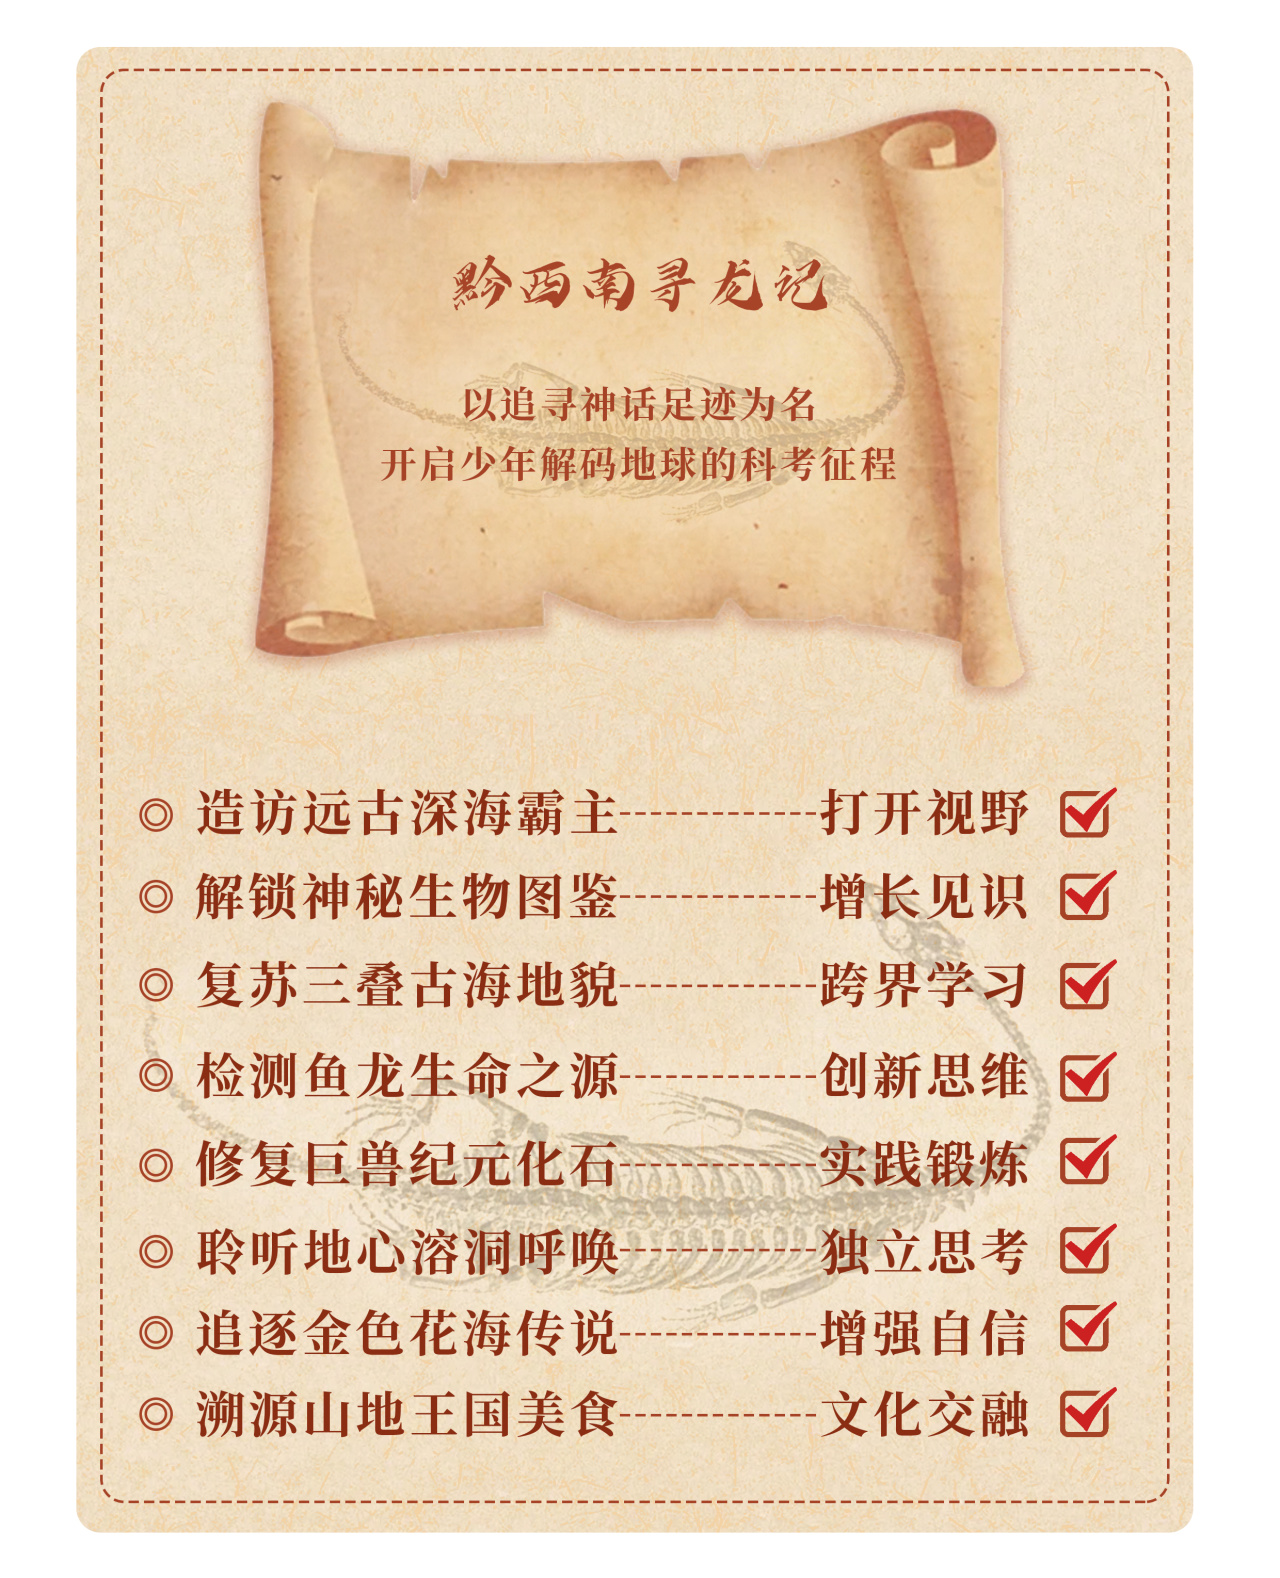 黔西南寻龙记
以追寻神话足迹为名
开启少年解码地球的科考征程
◎ 造访远古深海霸主-----------打开视野
◎ 解锁神秘生物图鉴-----------增长见识
◎ 复苏三叠古海地貌-----------跨界学习
◎ 检测鱼龙生命之源-----------创新思维
◎ 修复巨兽纪元化石-----------实践锻炼
◎ 聆听地心溶洞呼唤-----------独立思考
◎ 追逐金色花海传说-----------增强自信
◎ 溯源山地王国美食-----------文化交融